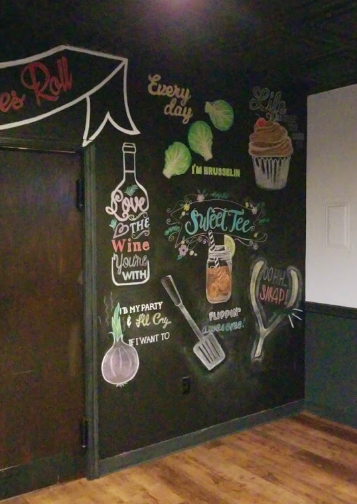 es Roll
Every
day
I'M BRUSSELIN
Life
Love
THE
Wine
You're
WITH
Sweet Tee
OOHH
SNAP!
IT'S MY PARTY
& I'll Cry
IF I WANT TO
FLIPPIN'